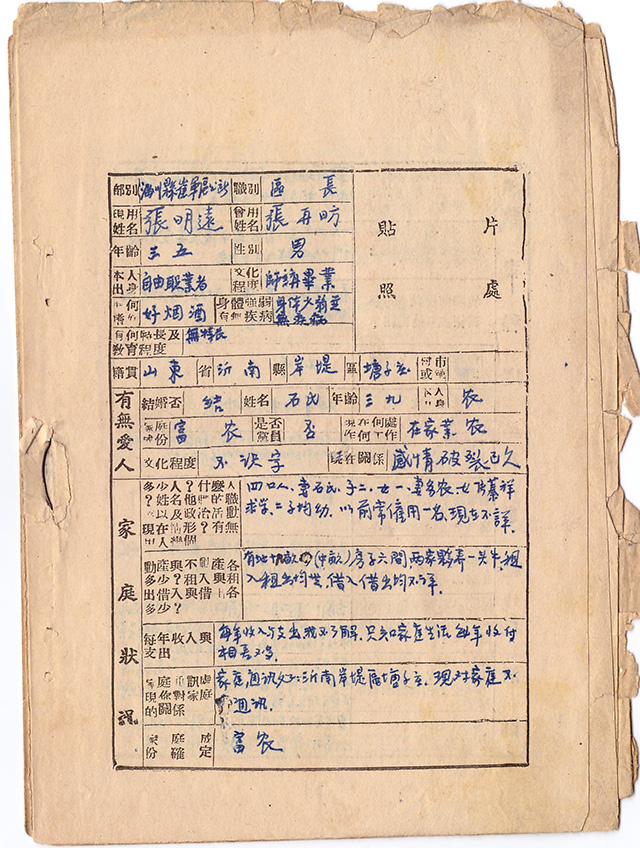 部別 縣 區公所 職別 區長
現用姓名 張明遠 曾用姓名 張再昉
年齡 三五 性別 男
本人出身 自由职業者 文化程度 師講畢業
有何嗜好 好烟酒 身體強弱有無疾病 無疾病
有何特長及教育程度 無特長
貼片
照處
籍貫 山東省沂南縣岸堤區塘子 村市或鎮
有無愛人
結婚否 结 姓名 石氏 年齡 三九 本人出身 农
家庭成份 富农 是否黨員 否 現在何處作何工作 在家業农
文化程度 不识字 現在關係 感情破裂已久
家庭狀況
多少人人?什麼職多?姓名他體的動?以及政治活有現在情形?有無出人幾個
四口人、妻石氏子二、女一、妻务农、女
求学、二子均幼。以前常僱用一名、現在不詳.
動產與不動產各多少?租入與租出借入借出各多少?
房子六間 两家夥养一头牛,租
入租出均無,借入借出均不详.
每年收入與支出
每年收入与支出我不了解,只知家庭生活 每年收付
家庭通訊處現你對家庭的關係重
家庭通讯处:沂南岸堤區塘子 現对家庭不
通讯.
家庭成份確定
富农